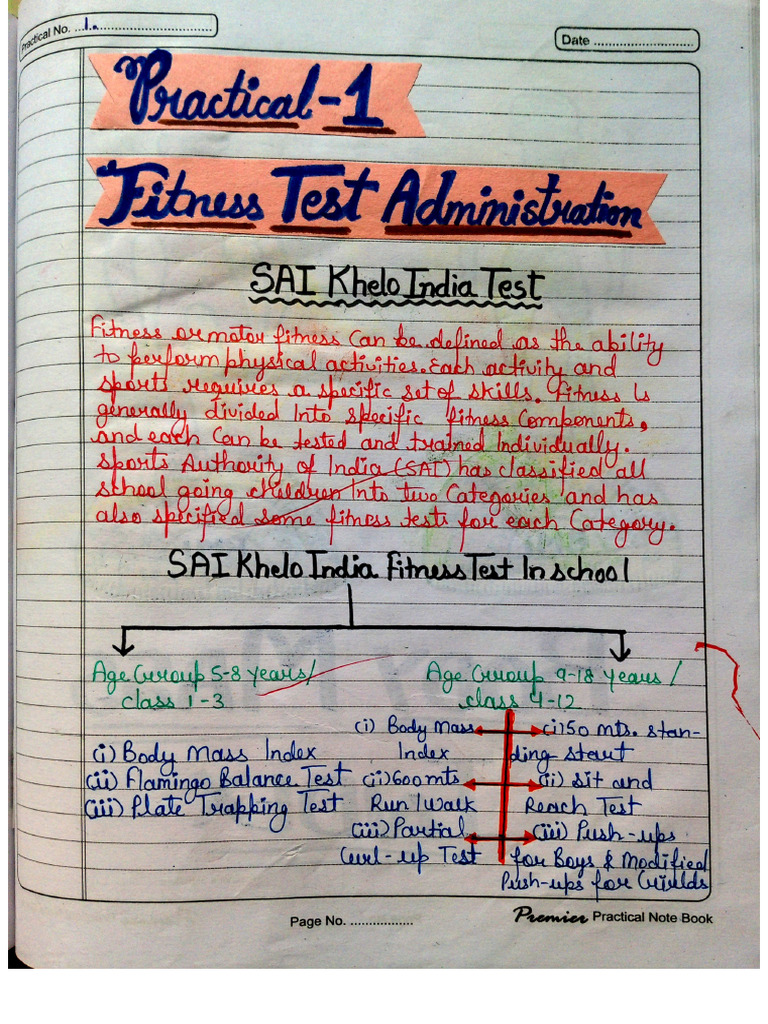 Practical No. ...1.....................
Date ..........................
Practical-1
Fitness Test Administration
SAI Khelo India Test
Fitness or motor fitness Can be defined as the ability
to perform physical activities. Each activity and
sports requires a specific set of skills. Fitness is
generally divided Into specific fitness Components,
and each Can be tested and trained Individually.
Sports Authority of India (SAI) has classified all
school going children Into two Categories and has
also specified some fitness tests for each Category.
SAI Khelo India Fitness Test In school
Age Group 5-8 years/
class 1-3
(i) Body Mass Index
(ii) Flamingo Balance Test
(iii) Plate Trapping Test
Age Group 9-18 years/
class 4-12
(i) Body Mass
Index
(ii) 600 mts
Run/Walk
(iii) Partial
Curl-up Test
(i) 50 mts. stan-
ding start
(ii) Sit and
Reach Test
(iii) Push-ups
for Boys & Modified
Push-ups for Girulds
Page No. .................
Premier Practical Note Book